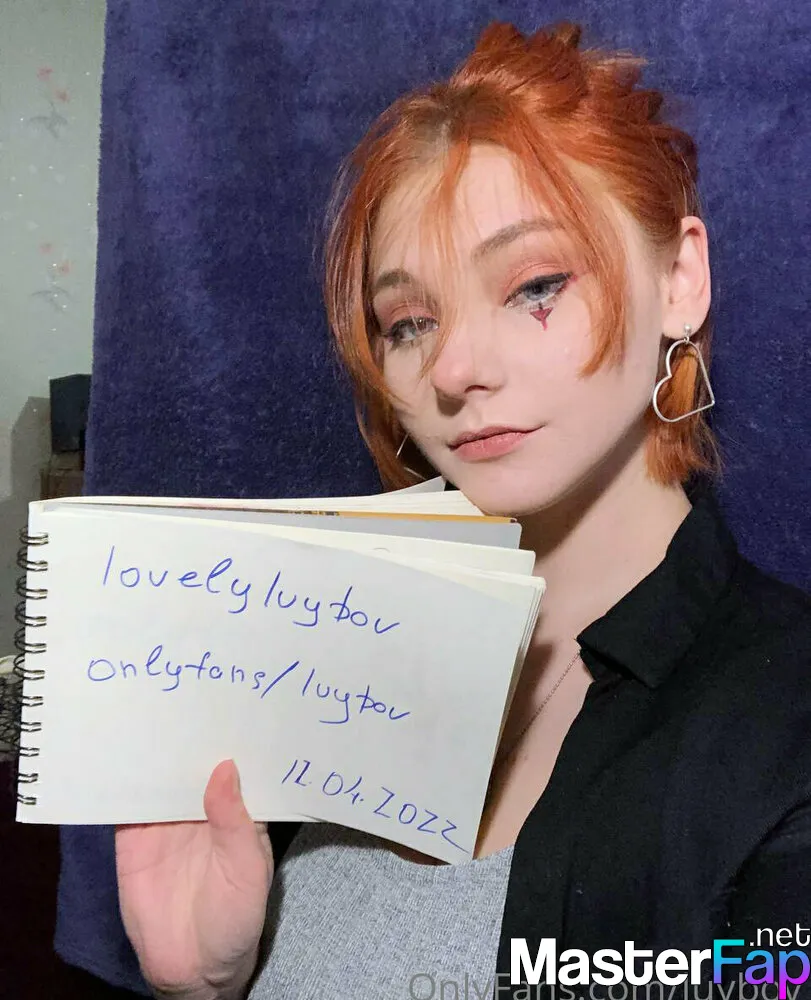 lovelyluybov
onlyfans/luybov
12.04.2022
.net
MasterFap
OnlyFans.com/luybov